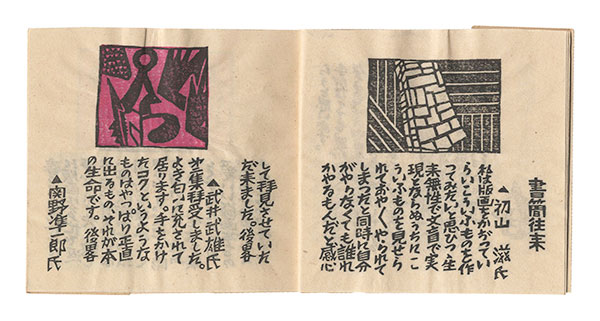 書簡往来
▲初山 滋氏
私は版画をかぢってい
らいこういふものを作
つてみたいと思ひつゝ生
来無性で文盲で実
現をならぬうちにこ
ういふものを見せら
れておやくやられて
しまつたと同時に自分
がやらなくても誰れ
かやるもんだと感心
して拝見をさせていた
だきました 後略
▲武井武雄氏
第二集拝受しました。
よき匂ひが発されて
居ります。手をかけ
たコクというような
ものはやっぱり正直
に出るもの。それが本
の生命です。後略
▲関野凖一郎氏